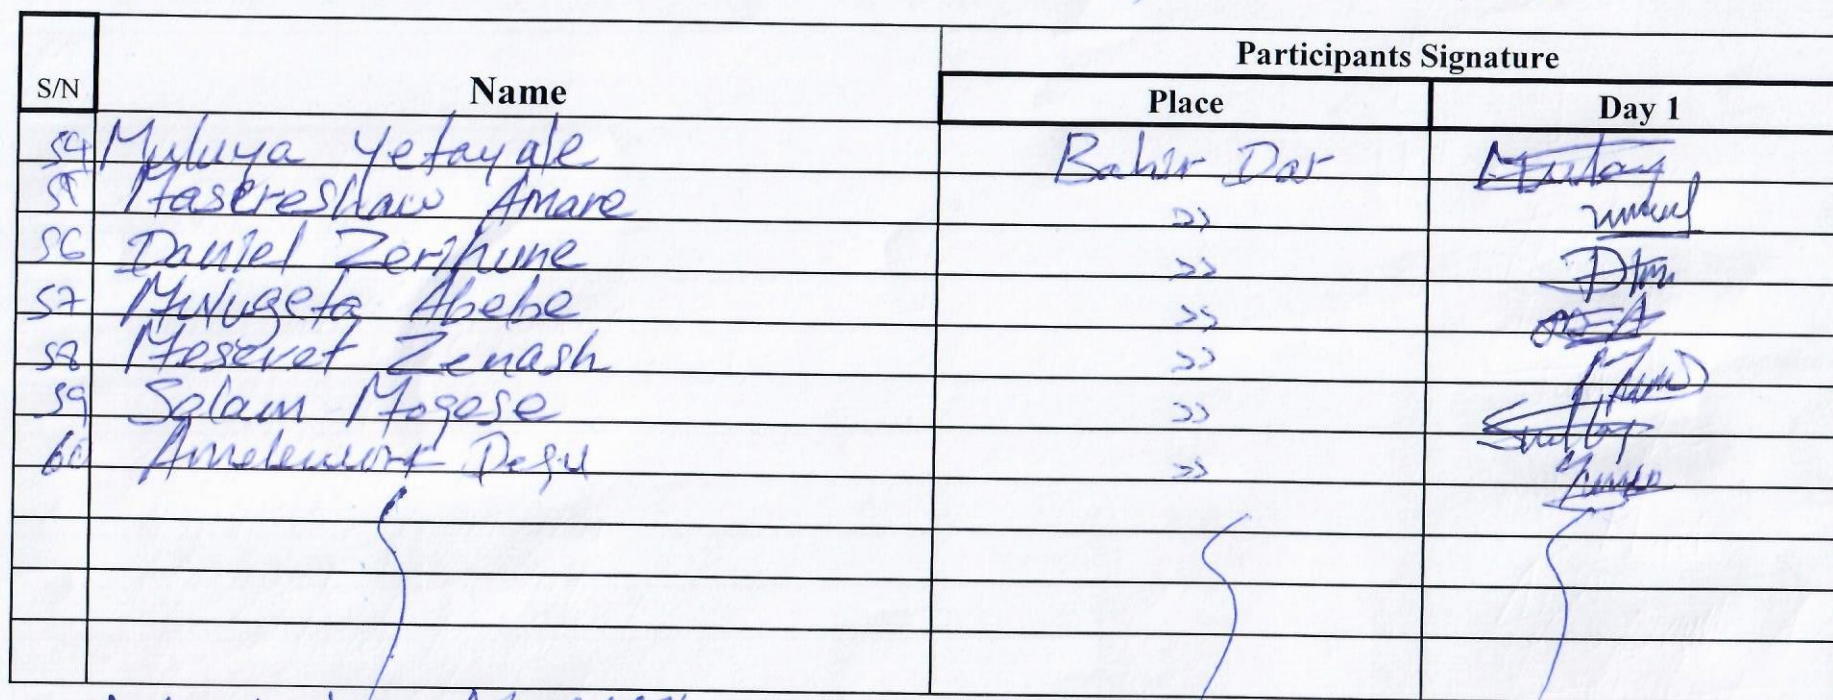 Participants Signature
S/N Name Place Day 1
54 Muluya Yetayale Bahir Dar
55 Masereshaw Amare >>
56 Daniel Zerihune >>
57 Mulugeta Abebe >>
58 Meseret Zenash >>
59 Salam Mogese >>
60 Amelework Degu >>